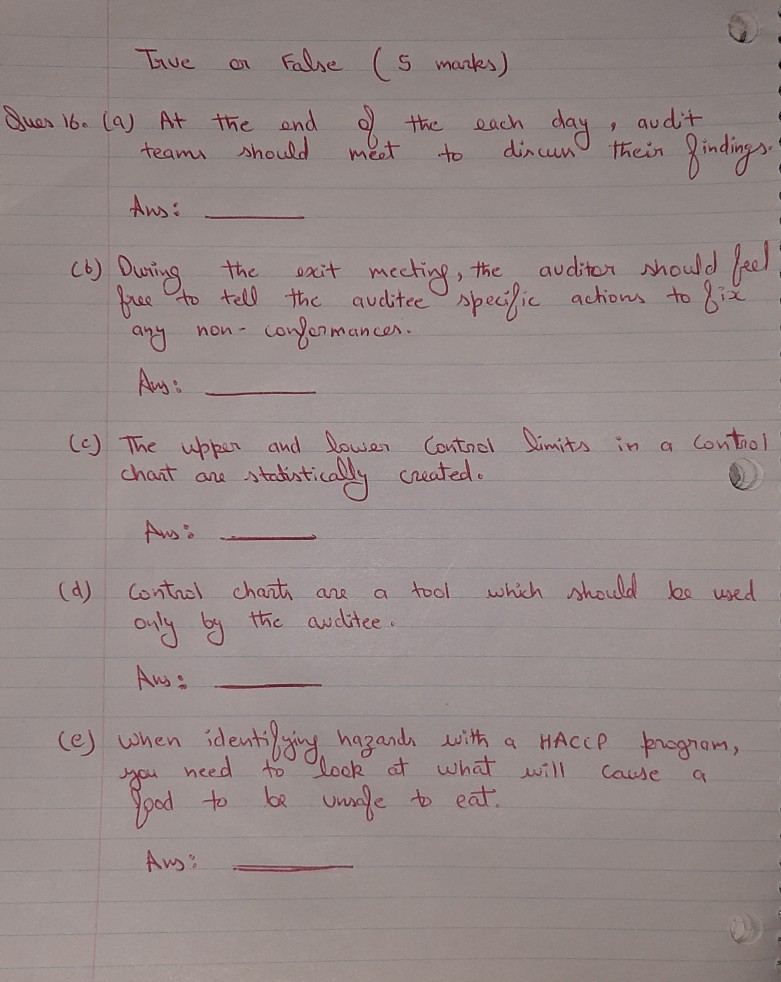 True or False (5 marks)
Ques 16. (a) At the end of the each day, audit
teams should meet to discuss their findings.
Ans: ________
(b) During the exit meeting, the auditor should feel
free to tell the auditee specific actions to fix
any non-conformances.
Ans: ________
(c) The upper and lower Control limits in a Control
chart are statistically created.
Ans: ________
(d) Control charts are a tool which should be used
only by the auditee.
Ans: ________
(e) When identifying hazards with a HACCP program,
you need to look at what will cause a
food to be unsafe to eat.
Ans: ________